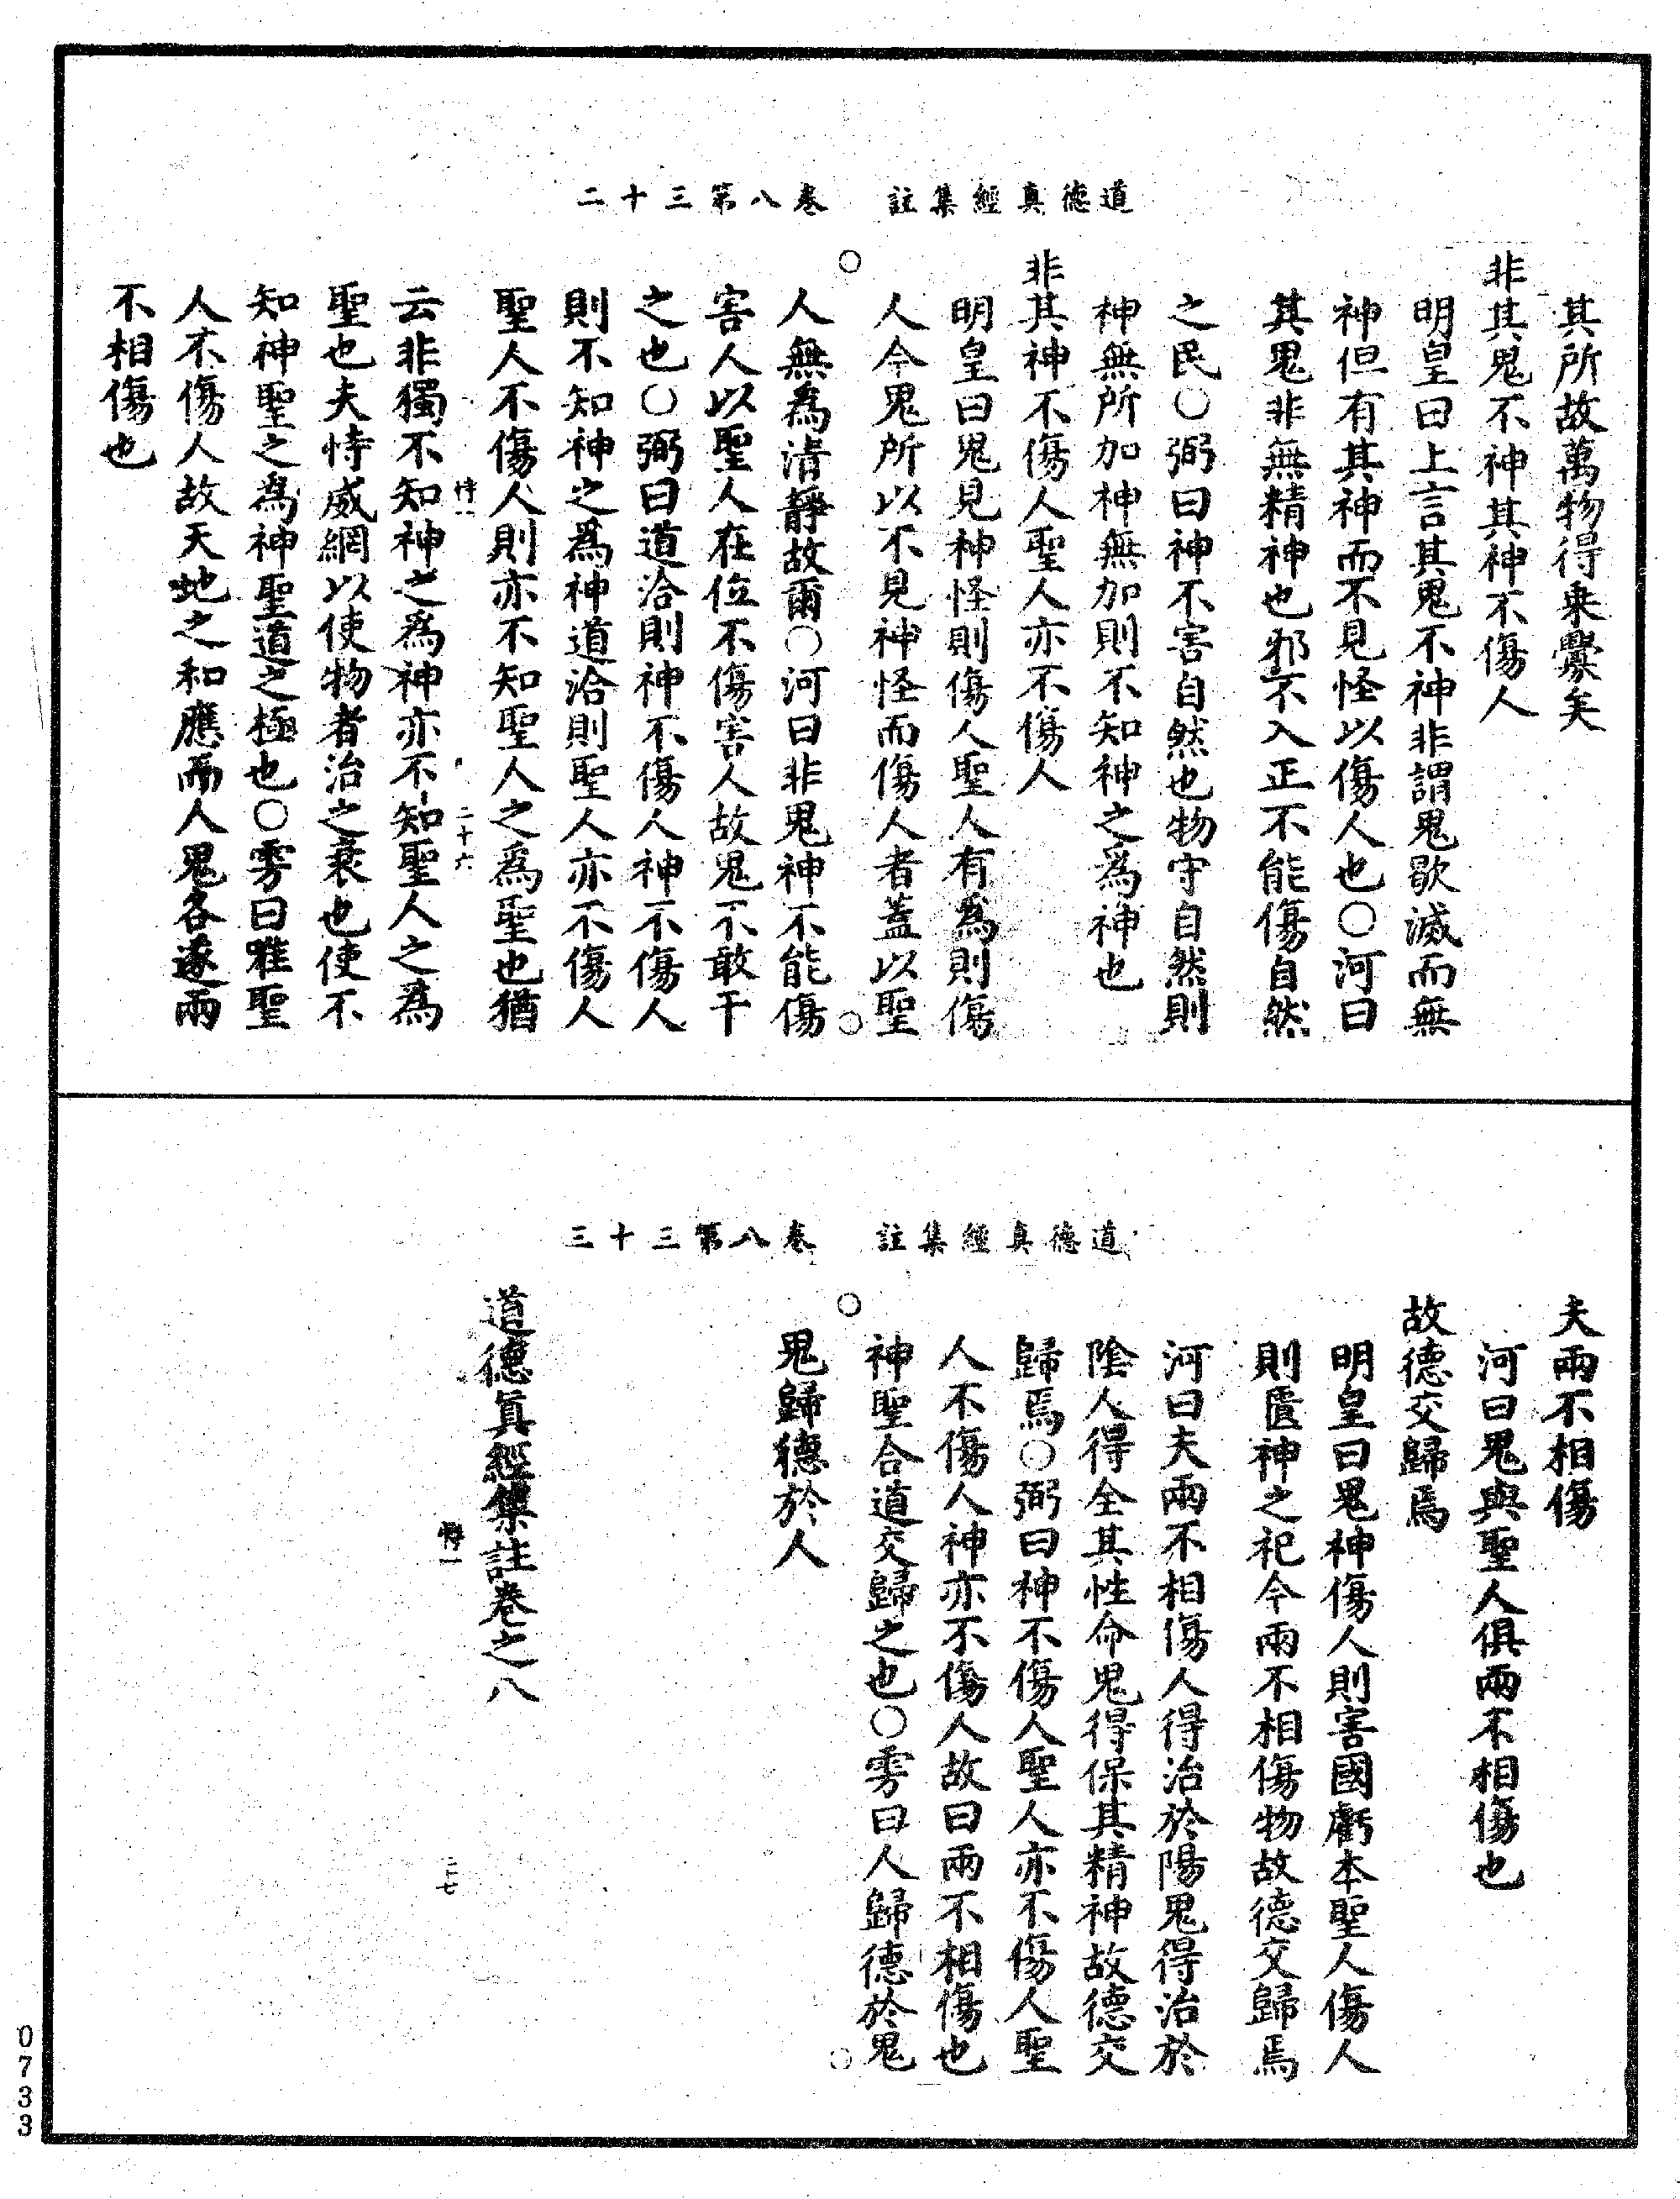 道德真經集註　卷八第三十二
其所故萬物得乗釁矣
非其鬼不神其神不傷人
明皇曰上言其鬼不神非謂鬼歇滅而無
神但有其神而不見怪以傷人也○河曰
其鬼非無精神也邪不入正不能傷自然
之民○弼曰神不害自然也物守自然則
神無所加神無加則不知神之為神也
非其神不傷人聖人亦不傷人
明皇曰鬼見神怪則傷人聖人有為則傷
人今鬼所以不見神怪而傷人者蓋以聖
人無為清靜故爾○河曰非鬼神不能傷
害人以聖人在位不傷害人故鬼不敢干
之也○弼曰道洽則神不傷人神不傷人
則不知神之為神道洽則聖人亦不傷人
聖人不傷人則亦不知聖人之為聖也猶
二十六
云非獨不知神之為神亦不知聖人之為
聖也夫恃威網以使物者治之衰也使不
知神聖之為神聖道之極也○雱曰唯聖
人不傷人故天地之和應而人鬼各遂兩
不相傷也
道德真經集註　卷八第三十三
夫兩不相傷
河曰鬼與聖人俱兩不相傷也
故德交歸焉
明皇曰鬼神傷人則害國虧本聖人傷人
則匱神之祀今兩不相傷物故德交歸焉
河曰夫兩不相傷人得治於陽鬼得治於
陰人得全其性命鬼得保其精神故德交
歸焉○弼曰神不傷人聖人亦不傷人聖
人不傷人神亦不傷人故曰兩不相傷也
神聖合道交歸之也○雱曰人歸德於鬼
鬼歸德於人
道德真經集註卷之八
二十七
0733